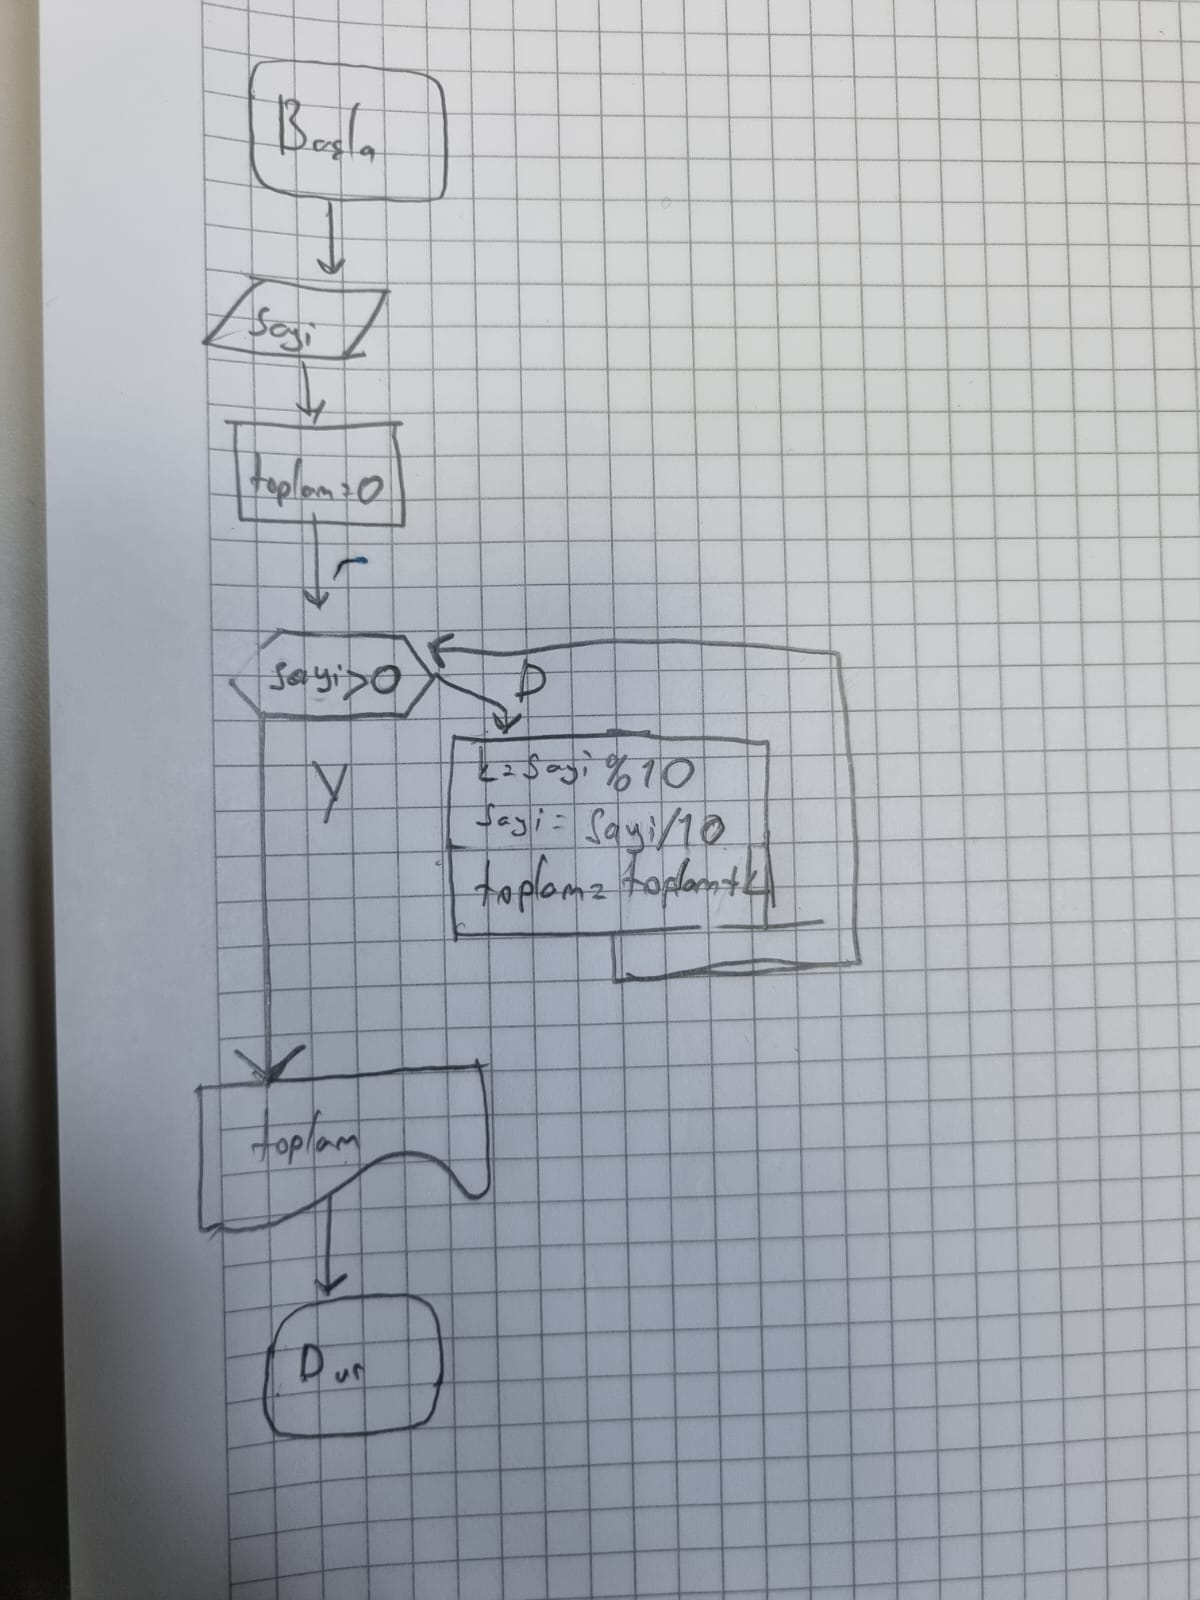 Başla
Sayi
toplam=0
Sayi>0
D
Y
k=Sayi%10
Sayi=Sayi/10
toplam=toplam+k
toplam
Dur